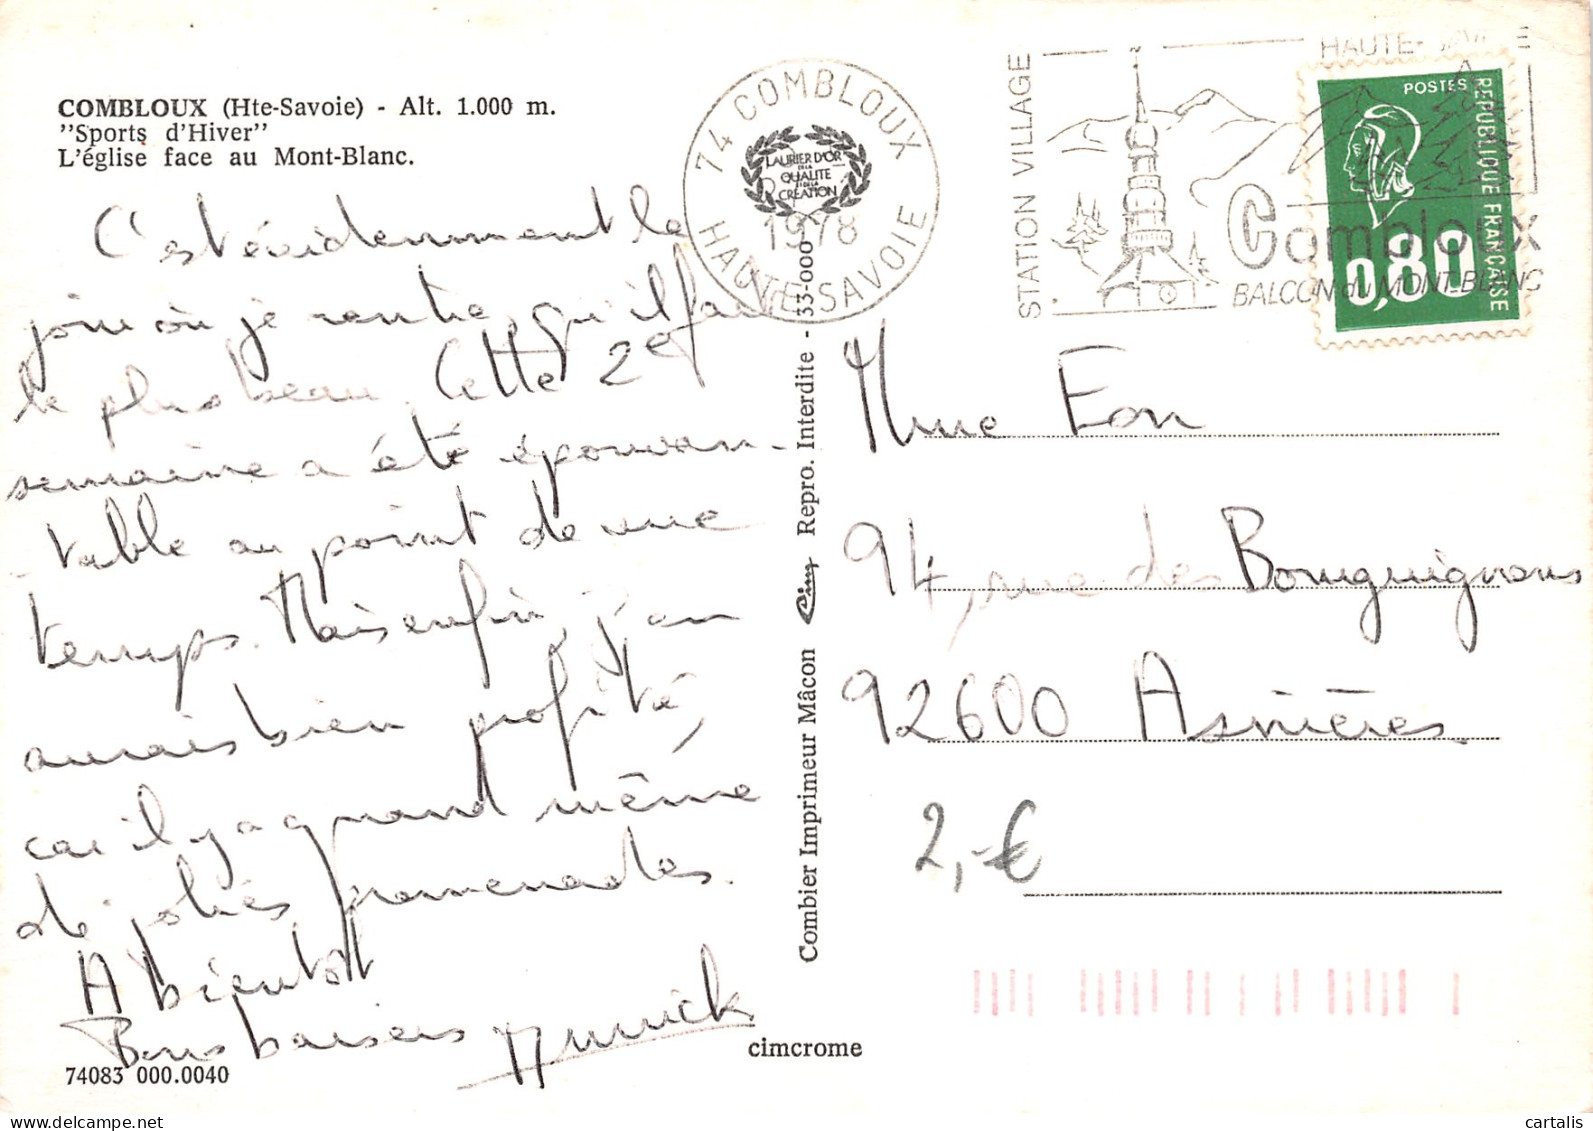 COMBLOUX (Hte-Savoie) - Alt. 1.000 m.
"Sports d'Hiver"
L'église face au Mont-Blanc.
C'est évidemment le
jour où je rentre qu'il fait
le plus beau. Cette 2e
semaine a été épouvan-
table au point de vue
temps. Mais enfin, j'en
aurais bien profité,
car il y a quand même
de jolies promenades.
A bientôt
Bons baisers Annick
74083 000.0040
cimcrome
Combier Imprimeur Mâcon Cim Repro. Interdite - 33-000
74 COMBLOUX
LAURIER D'OR
DE LA
QUALITE
ET DE LA
CREATION
1978
HAUTE-SAVOIE
STATION VILLAGE
HAUTE-SAVOIE
Combloux
BALCON du MONT-BLANC
POSTES
REPUBLIQUE FRANCAISE
0,80
Mme Eon
94, rue des Bourguignons
92600 Asnières
2,-€
cartalis
delcampe.net